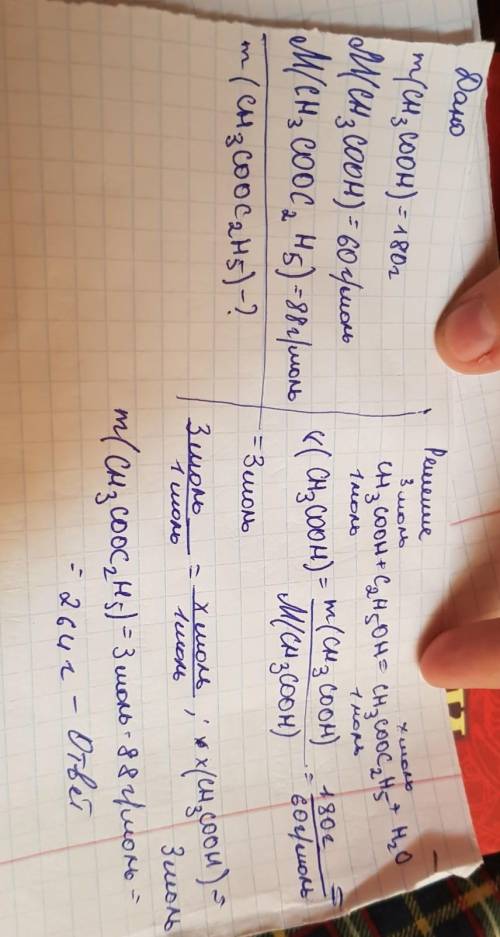 Дано
m(CH₃COOH) = 180г
M(CH₃COOH) = 60г/моль
M(CH₃COOC₂H₅) = 88г/моль
m(CH₃COOC₂H₅) - ?
Решение
3моль x моль
CH₃COOH + C₂H₅OH = CH₃COOC₂H₅ + H₂O
1моль 1моль
ν(CH₃COOH) = m(CH₃COOH) / M(CH₃COOH) = 180г / 60г/моль =
= 3моль
3моль / 1моль = x моль / 1моль ; x(CH₃COOH) =
3моль
m(CH₃COOC₂H₅) = 3моль · 88г/моль =
= 264г - Ответ